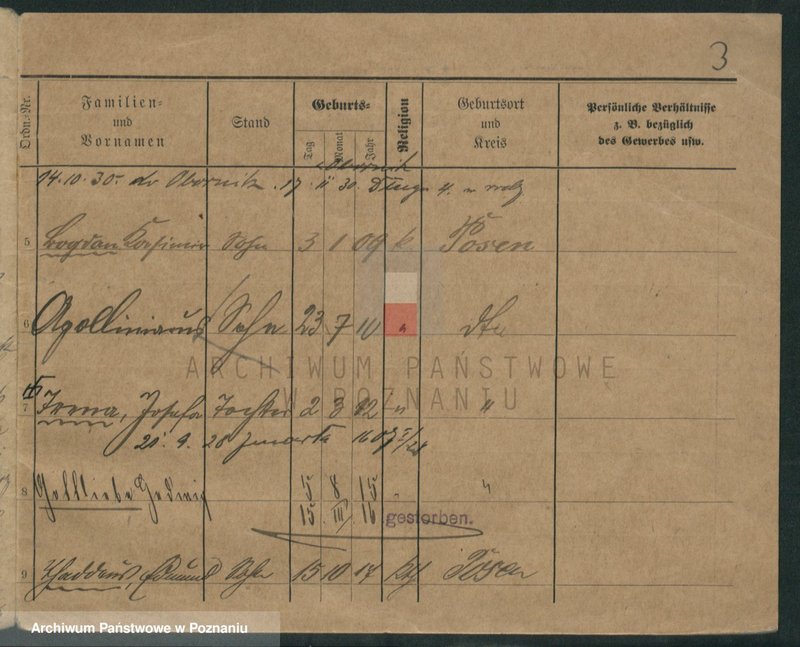 3
Ordn.-Nr. Familien- und Vornamen Stand Geburts- Tag Monat Jahr Religion Geburtsort und Kreis Persönliche Verhältnisse z. B. bezüglich des Gewerbes usw.
14.10.30. Obornik 17 11 30
Obornik
5 Bogdan Kasimir Sohn 3 1 09 k Posen
6 Apollinarus Sohn 23 7 10 " dto
7 Irma, Josefa Tochter 2 3 12 " "
20. 9. 28
8 Gottliebe Hedwig 5 8 15 " "
15 III 16 gestorben.
9 Thaddeus, Edmund Sohn 15 10 17 kth Posen
ARCHIWUM PAŃSTWOWE
W POZNANIU
Archiwum Państwowe w Poznaniu